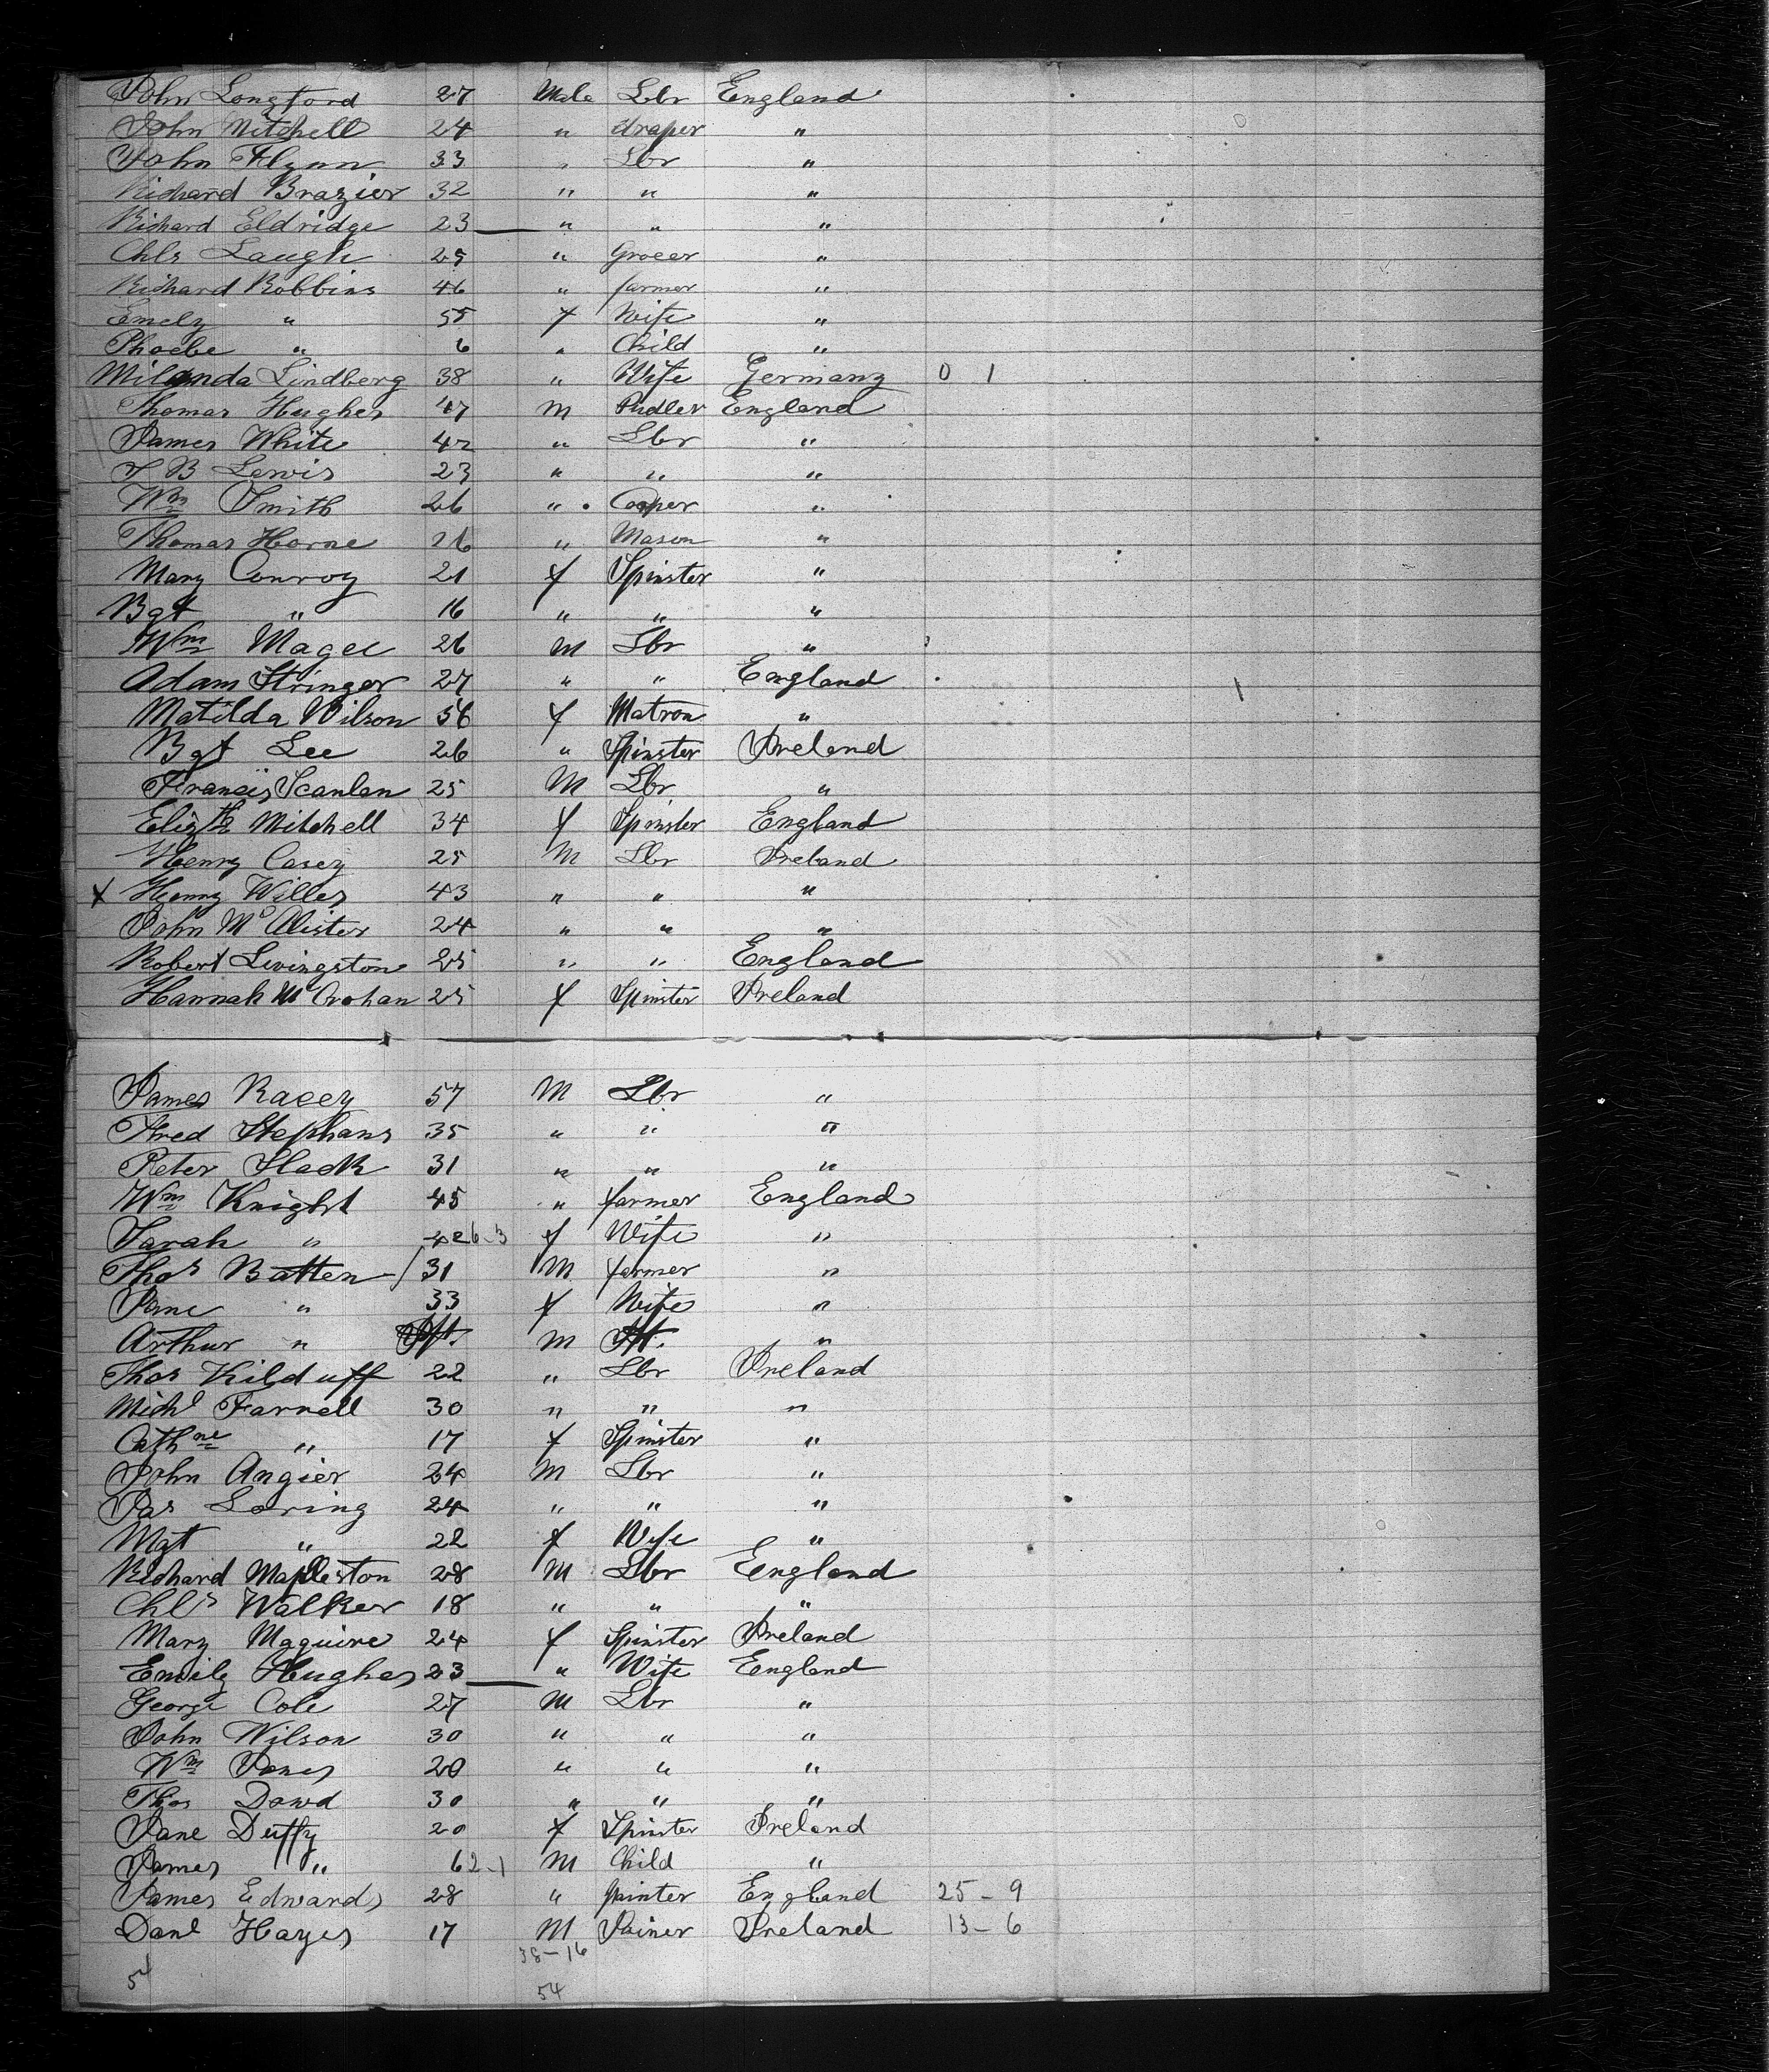 John Longford 27 Male Lbr England
John Mitchell 24 " draper "
John Flynn 33 " Lbr "
Richard Brazier 32 " " "
Richard Eldridge 23 " " "
Chls Laugh 25 " Grocer "
Richard Robbins 46 " farmer "
Emely " 55 f Wife "
Phoebe " 6 " Child "
Milanda Lindberg 38 " Wife Germany 0 1
Thomas Hughes 47 M Pudler England
James White 42 " Lbr "
J B Lewis 23 " " "
Wm Smith 26 " Cooper "
Thomas Horne 26 " Mason "
Mary Conroy 21 f Spinster "
Bgt " 16 " " "
Wm Magee 26 M Lbr "
Adam Stringer 27 " " England
Matilda Wilson 56 f Matron " 1
Bgt Lee 26 " Spinster Ireland
Francis Scanlan 25 M Lbr "
Elizth Mitchell 34 f Spinster England
Henry Casey 25 M Lbr Ireland
X Henry Willes 43 " " "
John Mc Alister 24 " " "
Robert Livingston 25 " " England
Hannah Mc Crohan 25 f Spinster Ireland
James Racey 57 M Lbr "
Fred Stephans 35 " " "
Peter Slack 31 " " "
Wm Knight 45 " farmer England
Sarah " 42 6-3 f Wife "
Thos Batten 31 M farmer "
Jane " 33 f Wife "
Arthur " Inft. M "
Thos Kilduff 22 " Lbr Ireland
Michl Farrell 30 " " "
Cathne " 17 f Spinster "
John Angier 24 M Lbr "
Jas Loring 24 " " "
Mgt " 22 f Wife "
Richard Mapleston 28 M Lbr England
Chls Walker 18 " " "
Mary Maguire 24 f Spinster Ireland
Emily Hughes 23 " Wife England
George Cole 27 M Lbr "
John Wilson 30 " " "
Wm Jones 20 " " "
Thos Dowd 30 " " "
Jane Duffy 20 f Spinster Ireland
James " 6 2-1 M Child "
James Edwards 28 " painter England 25-9
Danl Hayes 17 M Joiner Ireland 13-6
38-16
54